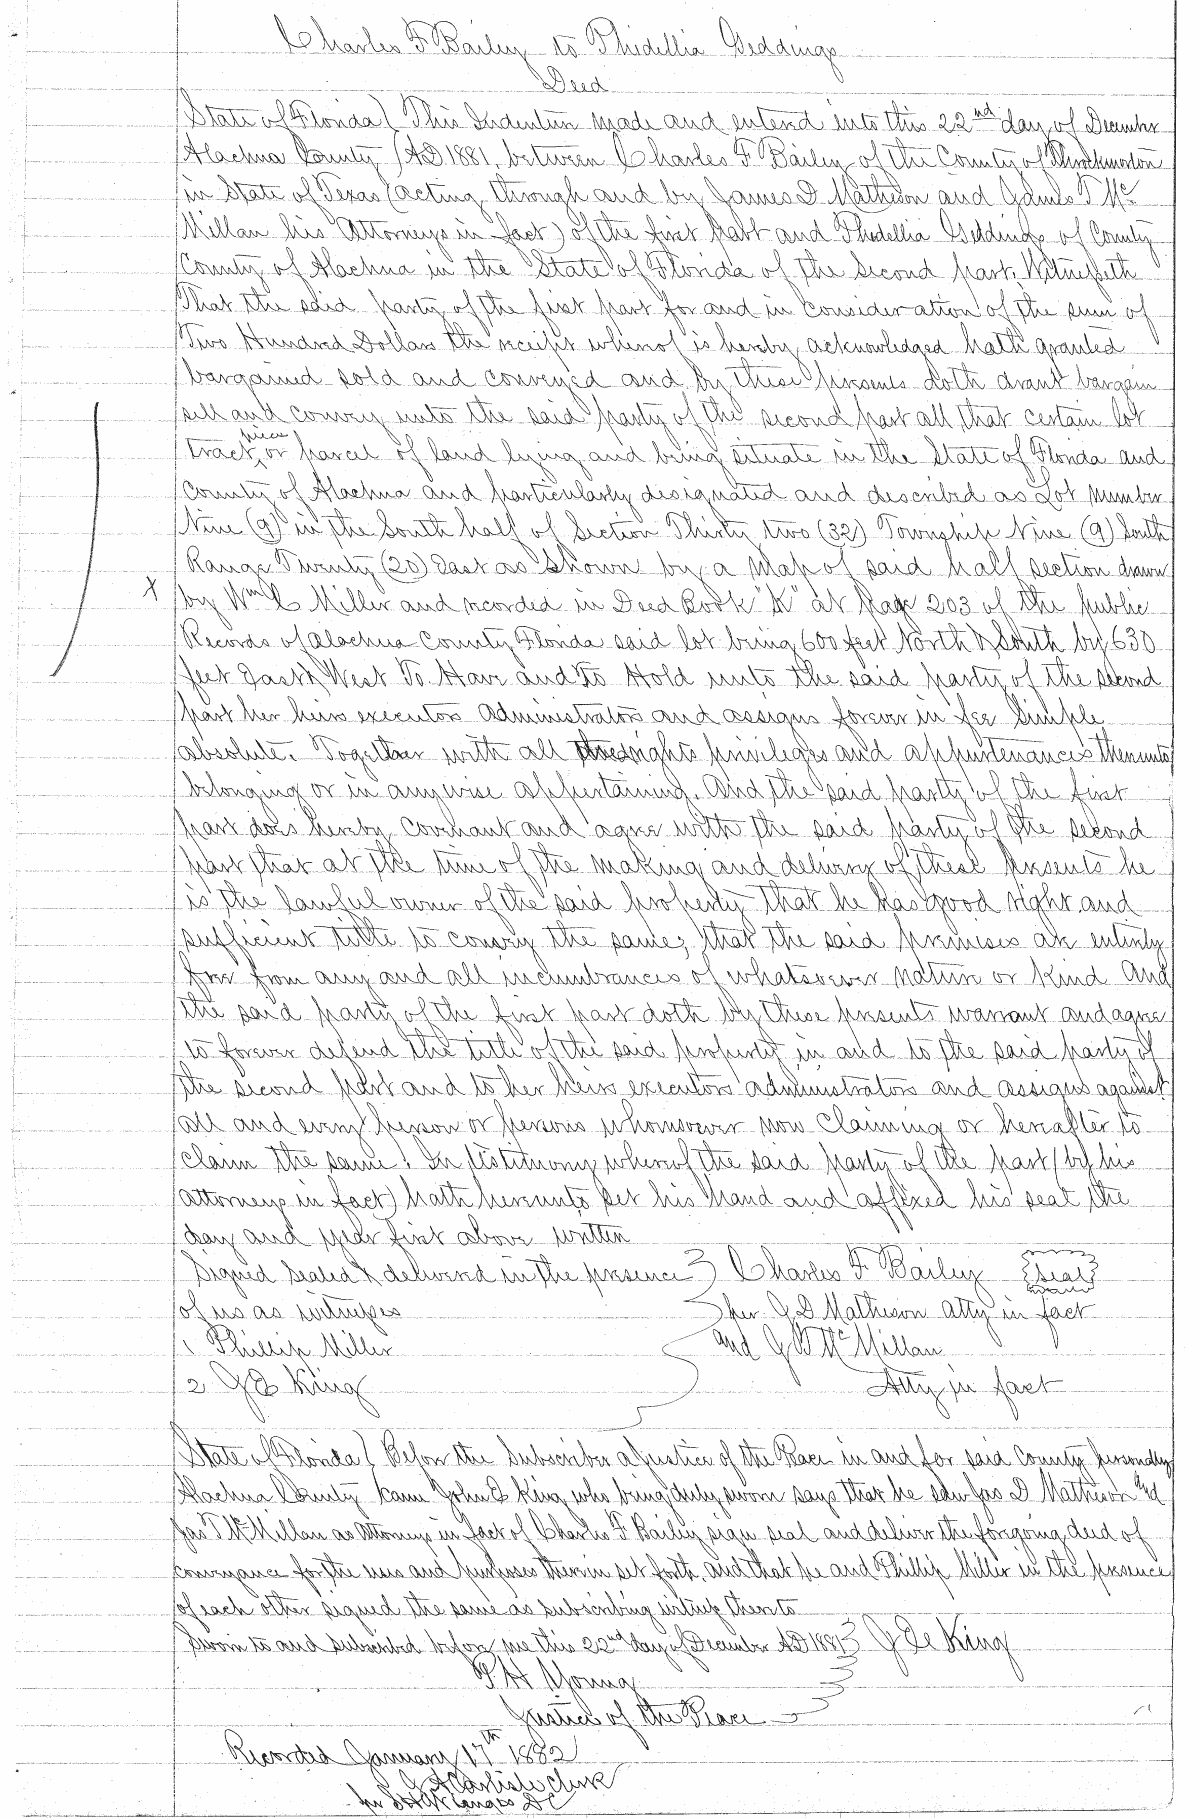 Charles F Bailey to Phidellia Geddings
Deed
State of Florida ( This Indenture made and entered into this 22nd day of December
Alachua County (AD 1881, between Charles F Bailey of the County of Throckmorton
in State of Texas (acting through and by James D Matheson and James T Mc
Millan his Attorneys in fact) of the first part and Phidellia Geddings of County
County of Alachua in the State of Florida of the second part, Witnesseth
That the said party of the first part for and in consideration of the sum of
Two Hundred Dollars the receipt whereof is hereby acknowledged hath granted
bargained sold and conveyed and by these presents doth grant bargain
sell and convey unto the said party of the second part all that certain lot
tract, piece or parcel of land lying and being situate in the State of Florida and
County of Alachua and particularly designated and described as Lot Number
Nine (9) in the South half of Section Thirty two (32) Township Nine (9) South
Range Twenty (20) East as shown by a Map of said half section drawn
x by Wm C Miller and recorded in Deed Book "K" at page 203 of the public
Records of Alachua County Florida said lot being 600 feet North & South by 630
feet East & West To Have and To Hold unto the said party of the second
part her heirs executors Administrators and assigns forever in fee simple
absolute. Together with all the rights privileges and appurtenances thereunto
belonging or in anywise appertaining. And the said party of the first
part does hereby covenant and agree with the said party of the second
part that at the time of the making and delivery of these presents he
is the lawful owner of the said property that he has good right and
sufficient title to convey the same; that the said premises are entirely
free from any and all incumbrances of whatsoever nature or kind And
the said party of the first part doth by these presents warrant and agree
to forever defend the title of the said property in and to the said party of
the second part and to her heirs executors administrators and assigns against
all and every person or persons whomsoever now claiming or hereafter to
claim the same. In testimony whereof the said party of the part (by his
attorneys in fact) hath hereunto set his hand and affixed his seal the
day and year first above written
Signed Sealed & delivered in the presence Charles F Bailey seal
of us as witnesses per J D Matheson atty in fact
1 Phillip Miller and J W McMillan
2 J E King Atty in fact
State of Florida ( Before the Subscriber a Justice of the Peace in and for said County personally
Alachua County came John E King who being duly sworn says that he saw Jas D Matheson and
Jas T McMillan as Attorneys in fact of Charles F Bailey sign seal and deliver the foregoing deed of
conveyance for the uses and purposes therein set forth, and that he and Phillip Miller in the presence
of each other signed the same as subscribing witness thereto
Sworn to and subscribed before me this 22nd day of December AD 1881 J E King
P H Young
Justice of the Peace
Recorded January 17th 1882
J A Carlisle Clerk